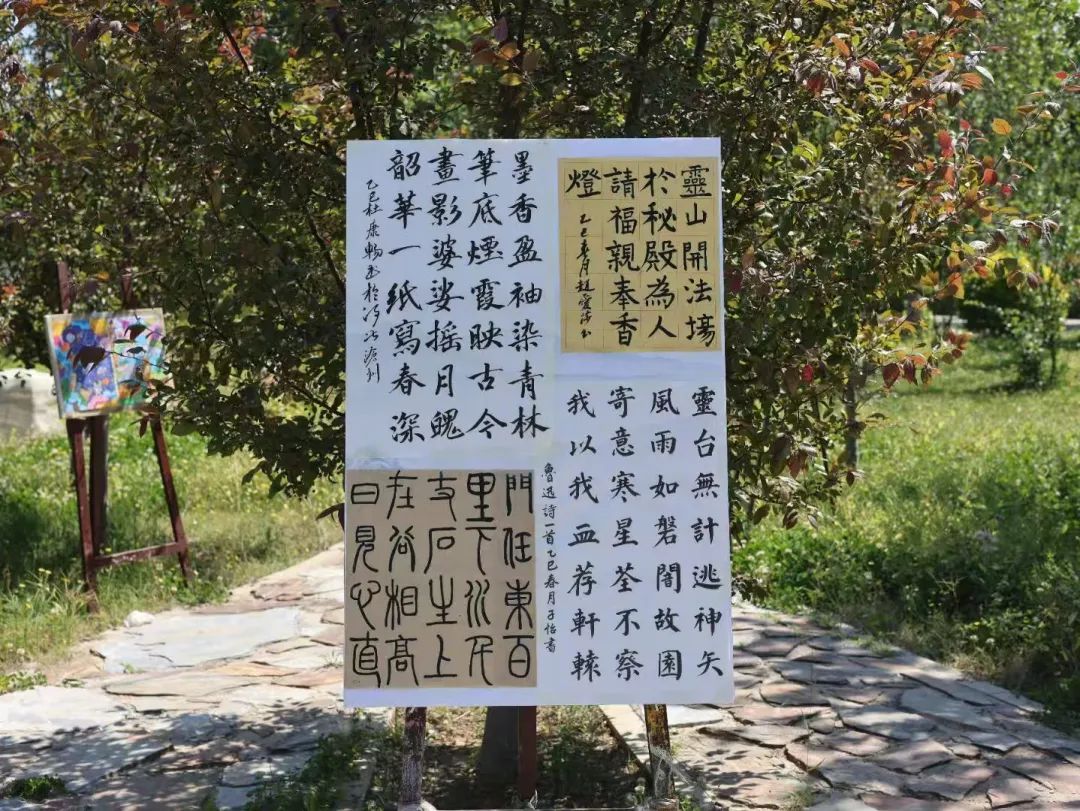 靈山開法場
於秘殿為人
請福親奉香
燈
乙巳春月趙愛
墨香盈袖染青林
筆底煙霞映古今
畫影婆娑摇月魄
韶華一紙寫春深
乙巳杜康暢书於
靈台無計逃神矢
風雨如磐闇故園
寄意寒星荃不察
我以我血荐軒轅
魯迅詩一首乙巳春月子怡書
門任東百
里下水民
支石生上
在谷相高
曰見心直